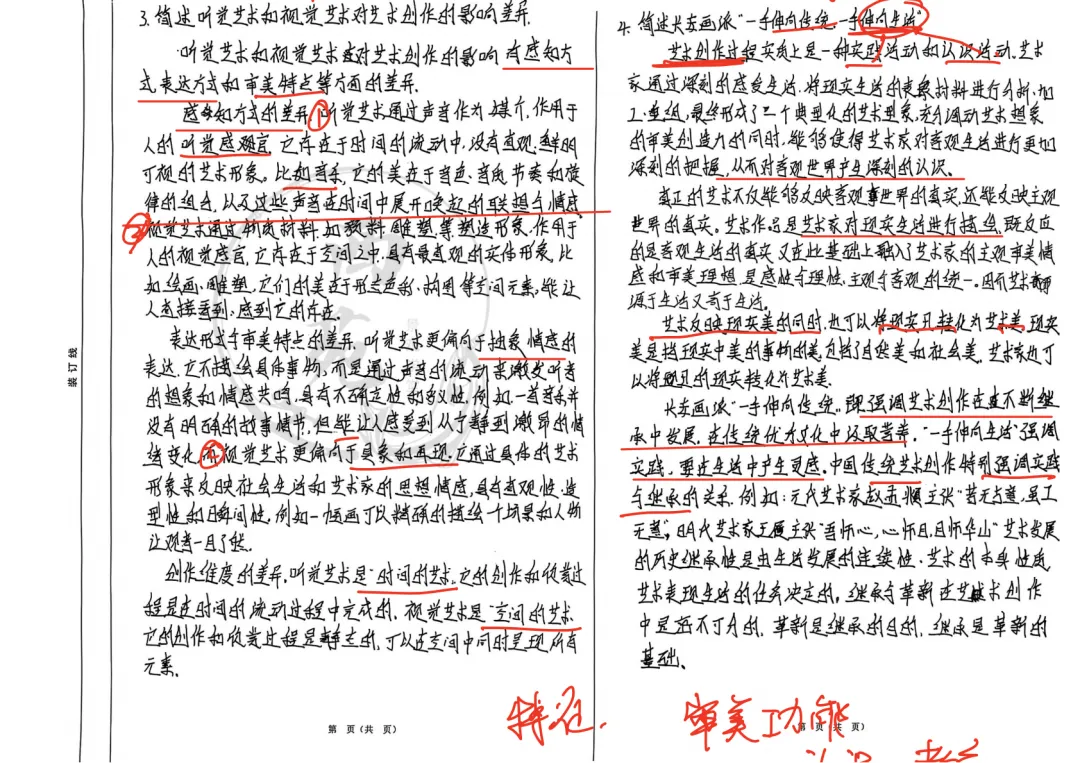 3. 简述听觉艺术和视觉艺术对艺术创作的影响差异.
听觉艺术和视觉艺术对艺术创作的影响有感知方
式、表达方式和审美特点等方面的差异.
感知方式的差异①听觉艺术通过声音作为媒介,作用于
人的听觉感官,它存在于时间的流动中,没有直观、鲜明
可视的艺术形象。比如音乐,它的美在于音色、音高、节奏和旋
律的组合,以及这些声音在时间中展开唤起的联想与情感.
②视觉艺术通过物质材料,如颜料、雕塑等塑造形象,作用于
人的视觉感官,它存在于空间之中,具有最直观的实体形象,比
如绘画、雕塑,它们的美在于形态色彩、构图等空间元素,能让
人直接看到、感到它的存在.
表达形式与审美特点的差异,听觉艺术更偏向于抽象、情感的
表达,它不描绘具体事物,而是通过声音的流动来激发听者
的想象和情感共鸣,具有不确定性和多义性,例如,一首音乐并
没有明确的故事情节,但能让人感受到从宁静到激昂的情
绪变化,②而视觉艺术更偏向于具象和再现,它通过具体的艺术
形象来反映社会生活和艺术家的思想情感,具有直观性、造
型性和瞬间性,例如一幅画可以精确的描绘一个场景和人物
让观者一目了然.
创作维度的差异,听觉艺术是“时间的艺术”,它的创作和欣赏过
程是在时间的流动过程中完成的,视觉艺术是“空间的艺术”
它的创作和欣赏过程是静态的,可以在空间中同时呈现所有
元素.
特征.
第 页(共 页)
装订线
4. 简述长安画派“一手伸向传统,一手伸向生活”
艺术创作过程实质上是一种实践活动和认识活动,艺术
家通过深刻的感受生活,将现实生活的表象材料进行分析、加
工、重组,最终形成了一个典型化的艺术形象,在调动艺术想象
的审美创造力的同时,能够使得艺术家对客观生活进行更加
深刻的把握,从而对客观世界产生深刻的认识.
真正的艺术不仅能够反映客观世界的真实,还能反映主观
世界的真实。艺术作品是艺术家对现实生活进行描绘,既反应
的是客观生活的真实,又在此基础上融入了艺术家的主观审美情
感和审美理想,是感性与理性、主观与客观的统一。因而艺术
源于生活又高于生活.
艺术反映现实美的同时,也可以将现实丑转化为艺术美,现实
美是指现实中美的事物的美,包括了自然美和社会美,艺术家也可
以将丑的现实转化为艺术美.
长安画派“一手伸向传统”,即强调艺术创作在不断继
承中发展,在传统优秀文化中汲取营养,“一手伸向生活”强调
实践,重在生活中产生灵感.中国传统艺术创作特别强调实践
与继承的关系,例如:元代艺术家赵孟頫主张“若无古意,虽工
无意”,明代艺术家王履主张“吾师心,心师目,目师华山”艺术发展
的历史继承性是由生活发展的连续性、艺术的本身性质、
艺术表现生活的任务决定的,继承与革新在艺术创作
中是密不可分的,革新是继承的目的,继承是革新的
基础.
审美功能
第 页(共 页)